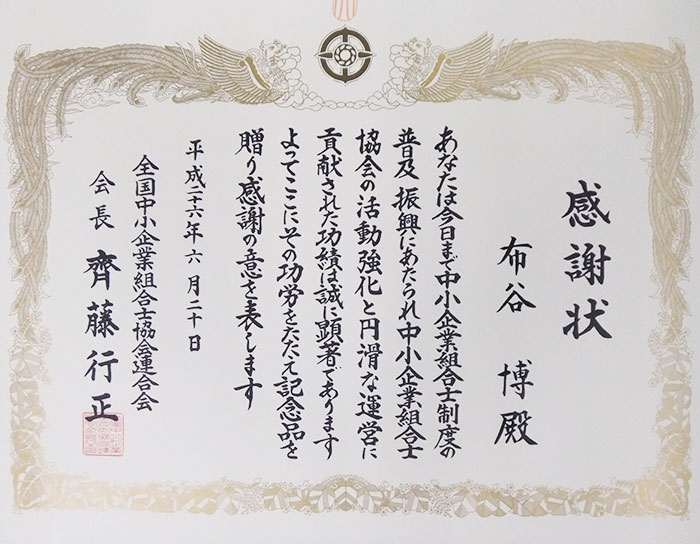 感謝状
布谷 博殿
あなたは今日まで中小企業組合士制度の
普及 振興にあたられ中小企業組合士
協会の活動強化と円滑な運営に
貢献された功績は誠に顕著であります
よってここにその功労をたたえ記念品を
贈り感謝の意を表します
平成二十六年六月二十日
全国中小企業組合士協会連合会
会長 齊藤行正